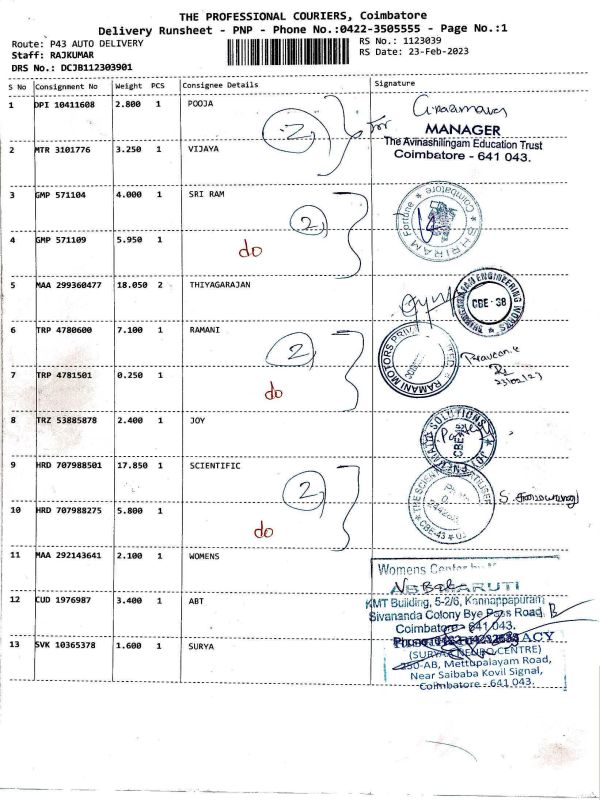 THE PROFESSIONAL COURIERS, Coimbatore
Delivery Runsheet - PNP - Phone No.:0422-3505555 - Page No.:1
Route: P43 AUTO DELIVERY
RS No.: 1123039
Staff: RAJKUMAR
RS Date: 23-Feb-2023
DRS No.: DCJB112303901
S No Consignment No Weight PCS Consignee Details Signature
1 DPI 10411608 2.800 1 POOJA
2 for
MANAGER
The Avinashilingam Education Trust
Coimbatore - 641 043.
2 MTR 3101776 3.250 1 VIJAYA
3 GMP 571104 4.000 1 SRI RAM
2
SHRIRAM Fortune Coimbatore
4 GMP 571109 5.950 1 do
5 MAA 299360477 18.050 2 THIYAGARAJAN
ENGINEERING WORKS
CBE - 38
6 TRP 4780600 7.100 1 RAMANI
2
RAMANI MOTORS PRIVATE LIMITED
Praveen.k
23/02/23
7 TRP 4781501 0.250 1 do
8 TRZ 53885878 2.400 1 JOY
JOY SOLUTIONS
CBE
9 HRD 707988501 17.850 1 SCIENTIFIC
2
THE SCIENTIFIC
CBE-43
10 HRD 707988275 5.800 1 do
11 MAA 292143641 2.100 1 WOMENS
Womens Center
12 CUD 1976987 3.400 1 ABT
ABT MARUTI
KMT Building, 5-2/6, Kannappapuram
Sivananda Colony Bye Pass Road
Coimbatore - 641 043.
13 SVK 10365378 1.600 1 SURYA
(SURYA NEURO CENTRE)
250-AB, Mettupalayam Road,
Near Saibaba Kovil Signal,
Coimbatore - 641 043.